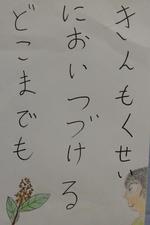 きんもくせい
においつづける
どこまでも